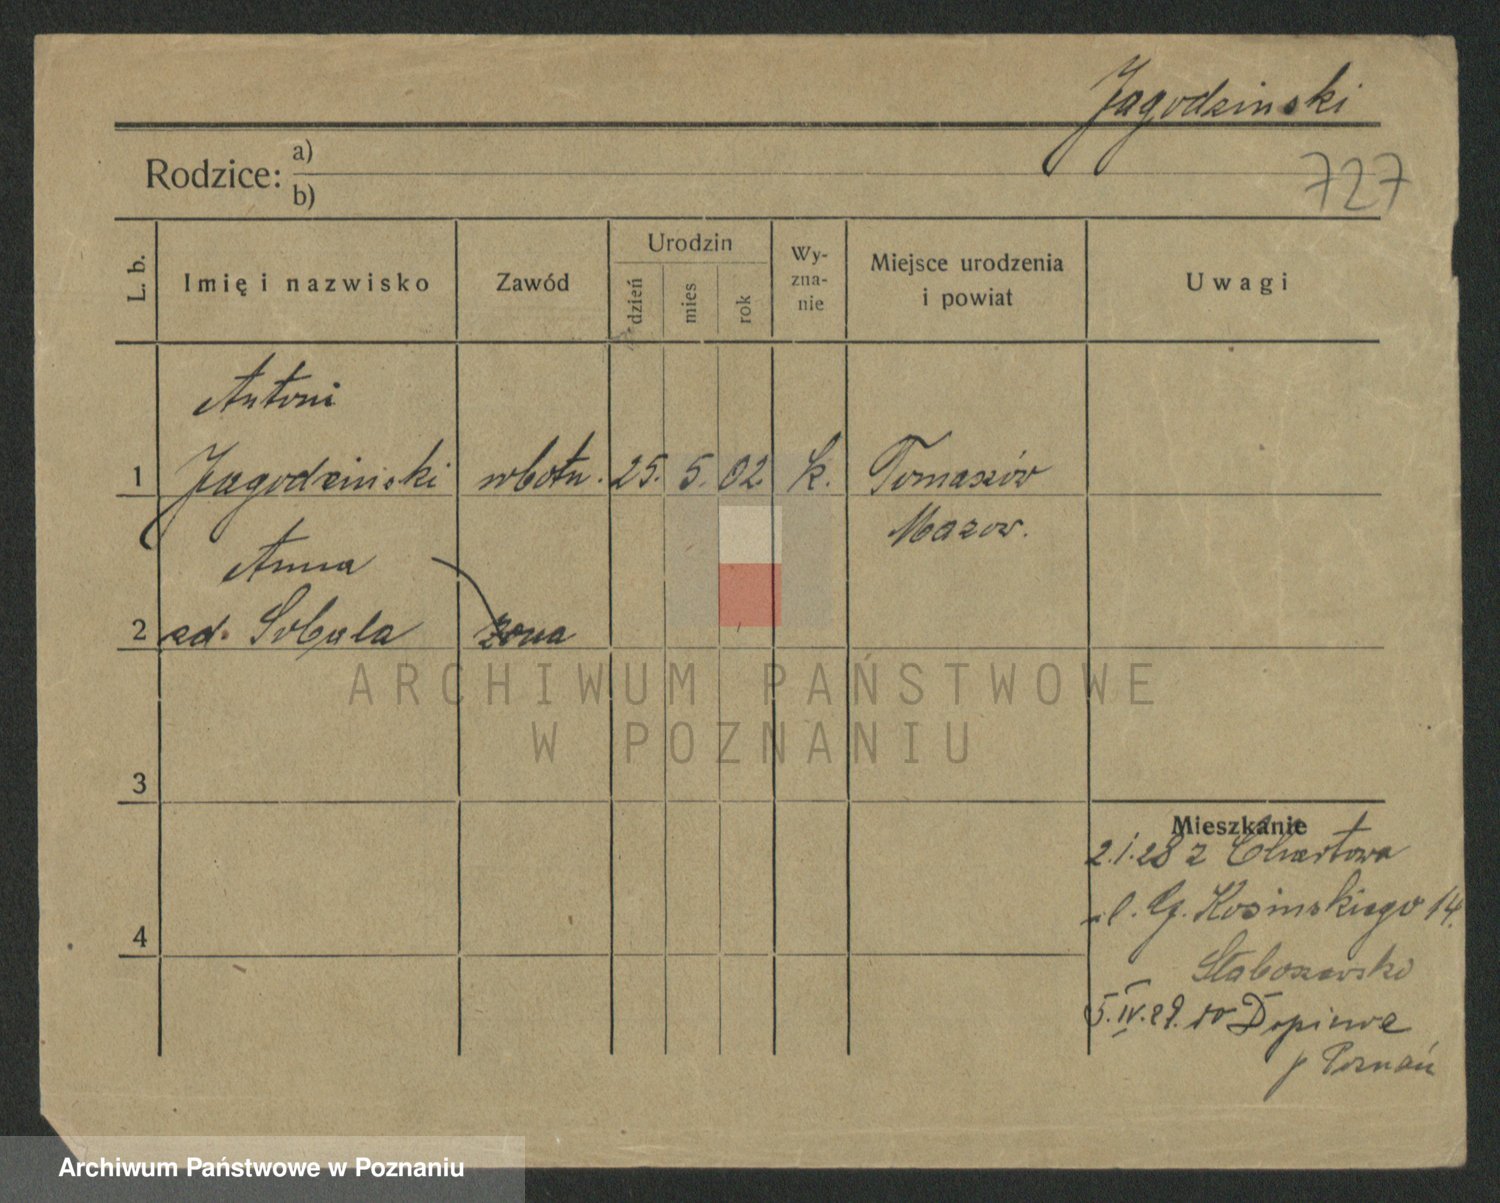 Jagodzinski
727
Rodzice: a)
b)
L. b.
Imię i nazwisko
Zawód
Urodzin
dzień
mies
rok
Wy-
zna-
nie
Miejsce urodzenia
i powiat
Uwagi
Antoni
1 Jagodzinski robotn. 25. 5. 02. k. Tomaszów
Mazow.
Anna
2 zd. Sobala żona
ARCHIWUM PAŃSTWOWE
W POZNANIU
3
Mieszkanie
2.1.28 z Chartowa
ul. Kosinskiego 14.
4
5.IV.29. do Dopiewa
p Poznań
Archiwum Państwowe w Poznaniu